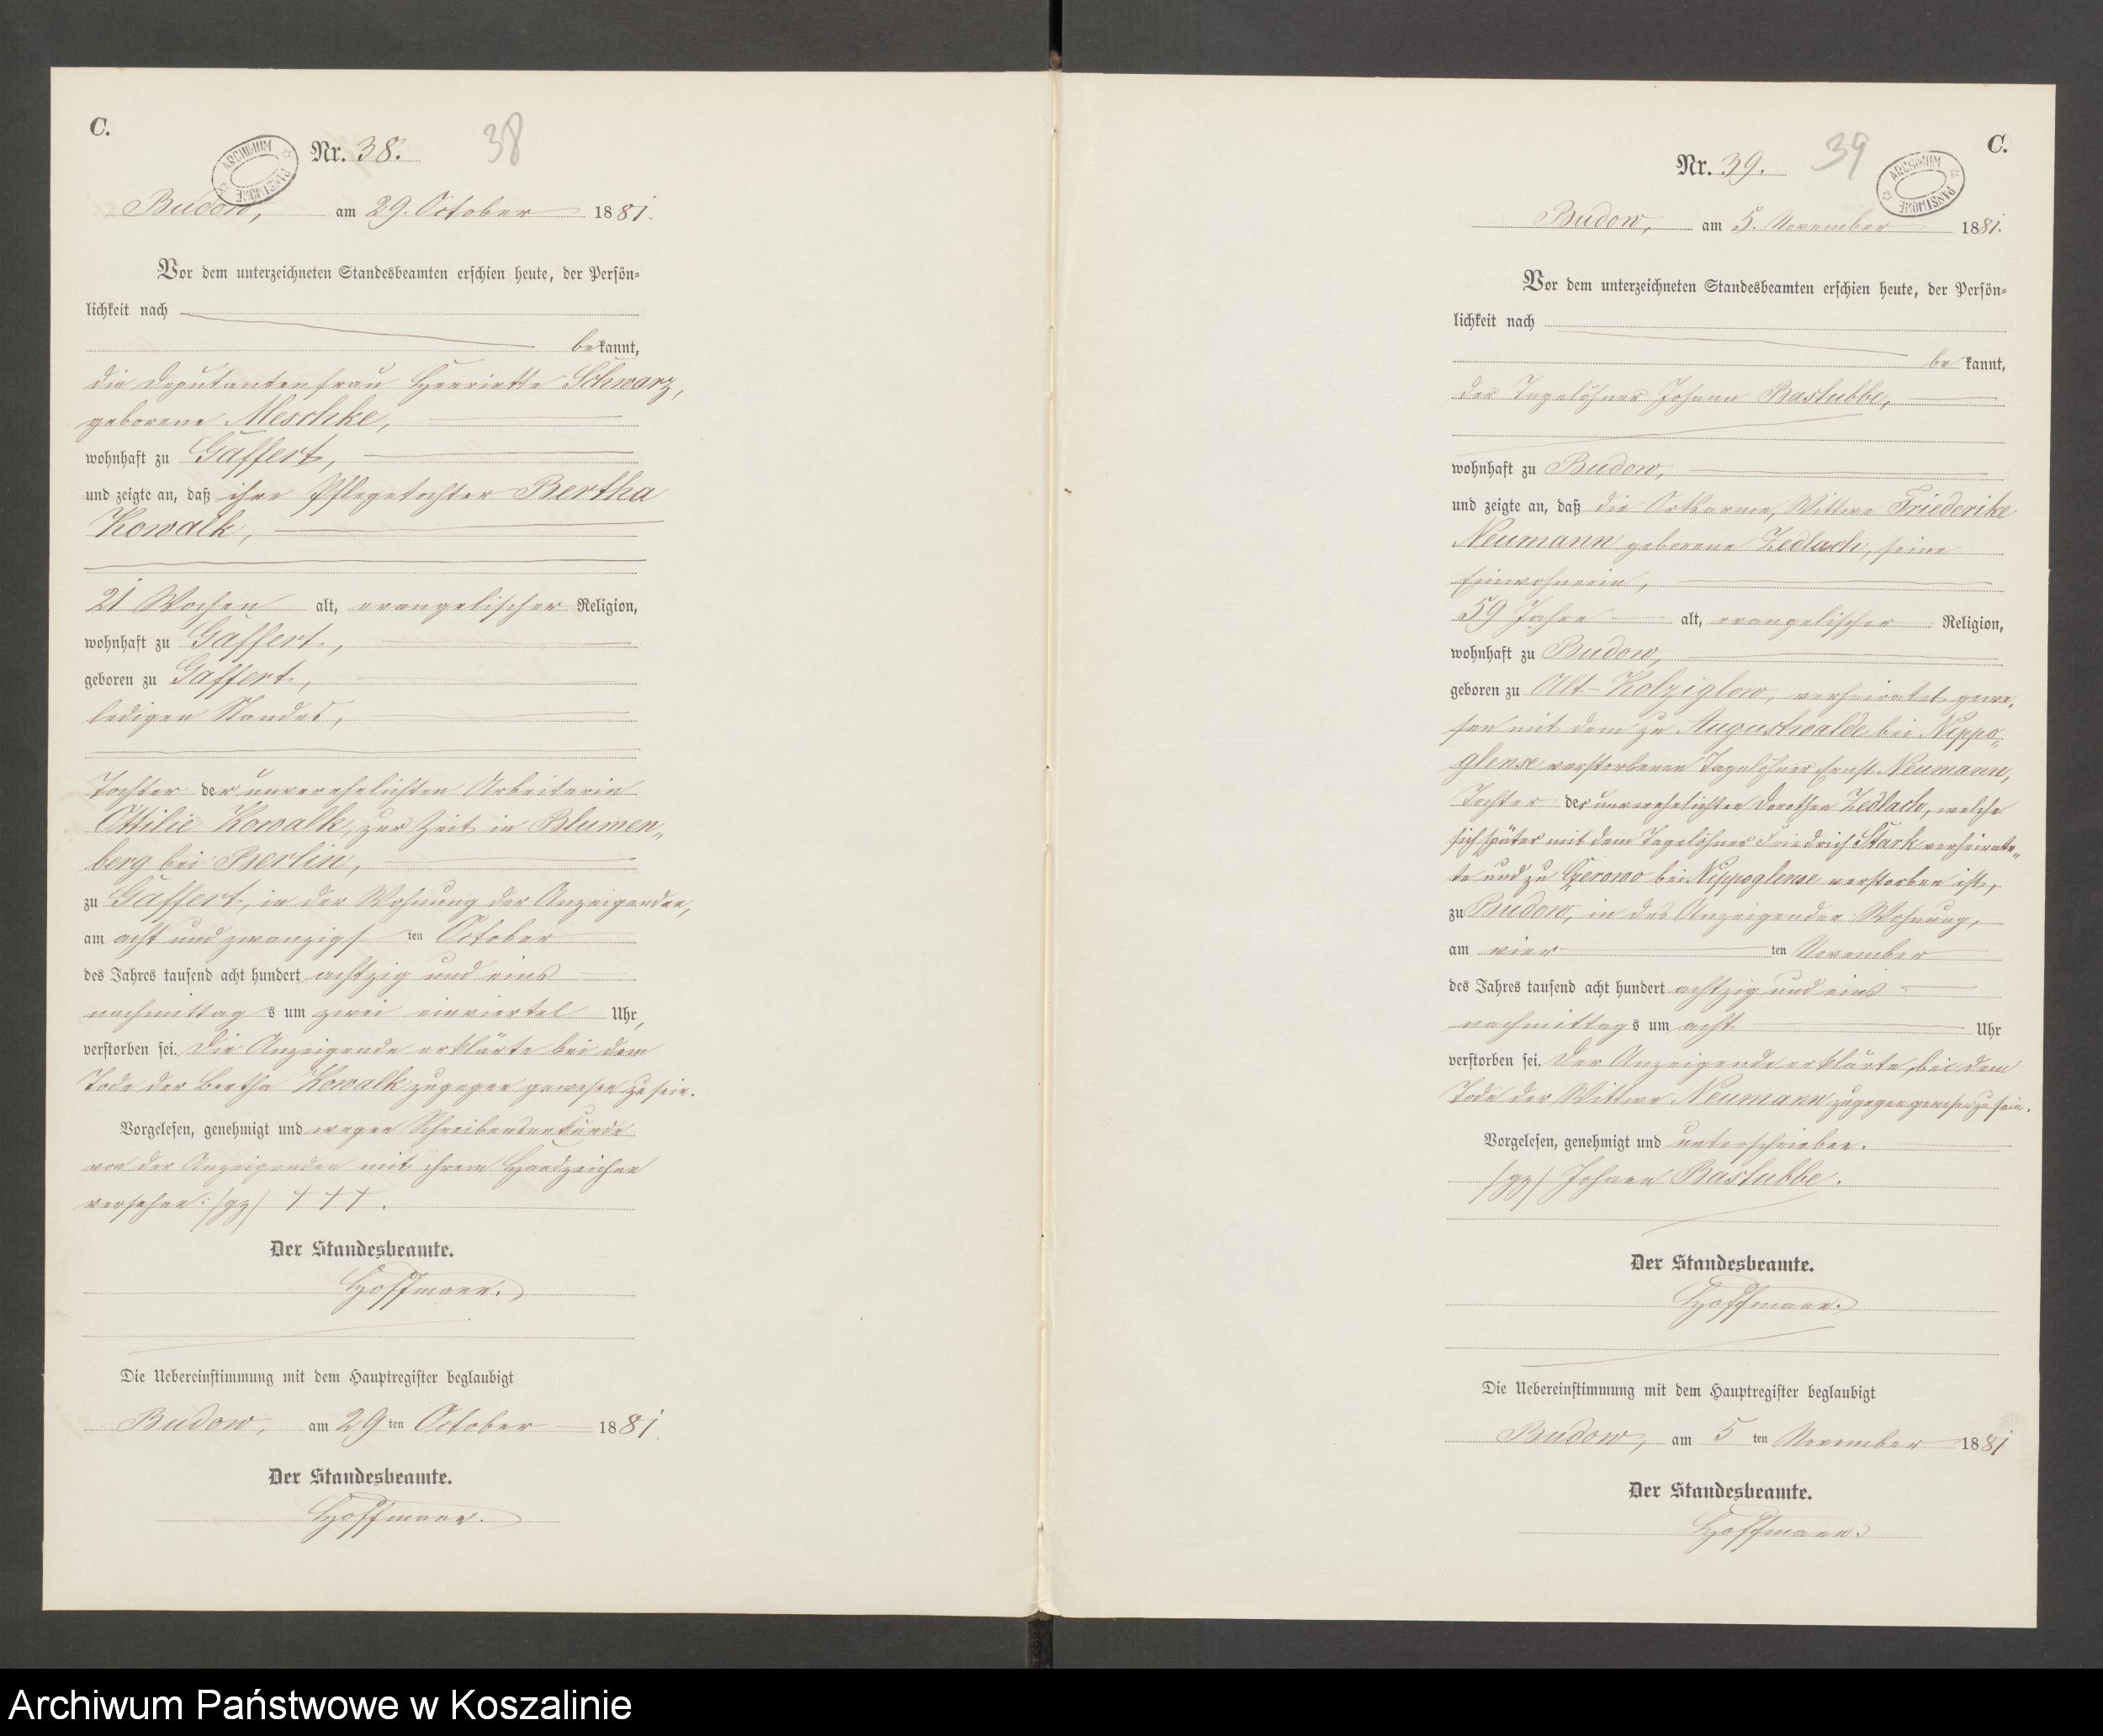 C.
Nr. 38.
38
ARCHIWUM PAŃSTWOWE
Budow, am 29. October 1881.
Vor dem unterzeichneten Standesbeamten erschien heute, der Persön=
lichkeit nach
bekannt,
die Deputantenfrau Henriette Schwarz,
geborene Meschke,
wohnhaft zu Gaffert,
und zeigte an, daß ihre Pflegetochter Bertha
Kowalk,
21 Wochen alt, evangelischer Religion,
wohnhaft zu Gaffert,
geboren zu Gaffert,
ledigen Standes,
Tochter der unverehelichten Arbeiterin
Ottilie Kowalk, zur Zeit in Blumen„
berg bei Berlin,
zu Gaffert, in der Wohnung der Anzeigenden,
am acht und zwanzigs ten October
des Jahres tausend acht hundert achtzig und eins
nachmittag s um zwei einviertel Uhr,
verstorben sei. Die Anzeigende erklärte bei dem
Tode der Bertha Kowalk zugegen gewesen zu sein.
Vorgelesen, genehmigt und wegen Schreibensunkunde
von der Anzeigenden mit ihrem Handzeichen
versehen: /gz/ + + + .
Der Standesbeamte.
Hoffmann.
Die Uebereinstimmung mit dem Hauptregister beglaubigt
Budow, am 29 ten October 1881
Der Standesbeamte.
Hoffmann.
C.
Nr. 39.
39
ARCHIWUM PAŃSTWOWE
Budow, am 5. November 1881.
Vor dem unterzeichneten Standesbeamten erschien heute, der Persön=
lichkeit nach
be kannt,
der Tagelöhner Johann Bastubbe,
wohnhaft zu Budow,
und zeigte an, daß die Ortsarme, Wittwe Friederike
Neumann geborene Zedlach, seine
Einwohnerin,
59 Jahre alt, evangelischer Religion,
wohnhaft zu Budow,
geboren zu Alt-Kolziglow, verheiratet gewe„
sen mit dem zu Augustwalde bei Nippo„
glense verstorbenen Tagelöhner Ernst Neumann,
Tochter der unverehelichten Dorothea Zedlach, welche
sich später mit dem Tagelöhner Friedrich Stark verheirate„
te und zu Gerowo bei Nippoglense verstorben ist,
zu Budow, in des Anzeigenden Wohnung,
am vier ten November
des Jahres tausend acht hundert achtzig und eins
nachmittags um acht Uhr
verstorben sei. Der Anzeigende erklärte, bei dem
Tode der Wittwe Neumann zugegen gewesen zu sein.
Vorgelesen, genehmigt und unterschrieben.
/gz/ Johann Bastubbe.
Der Standesbeamte.
Hoffmann.
Die Uebereinstimmung mit dem Hauptregister beglaubigt
Budow, am 5 ten November 1881
Der Standesbeamte.
Hoffmann.
Archiwum Państwowe w Koszalinie